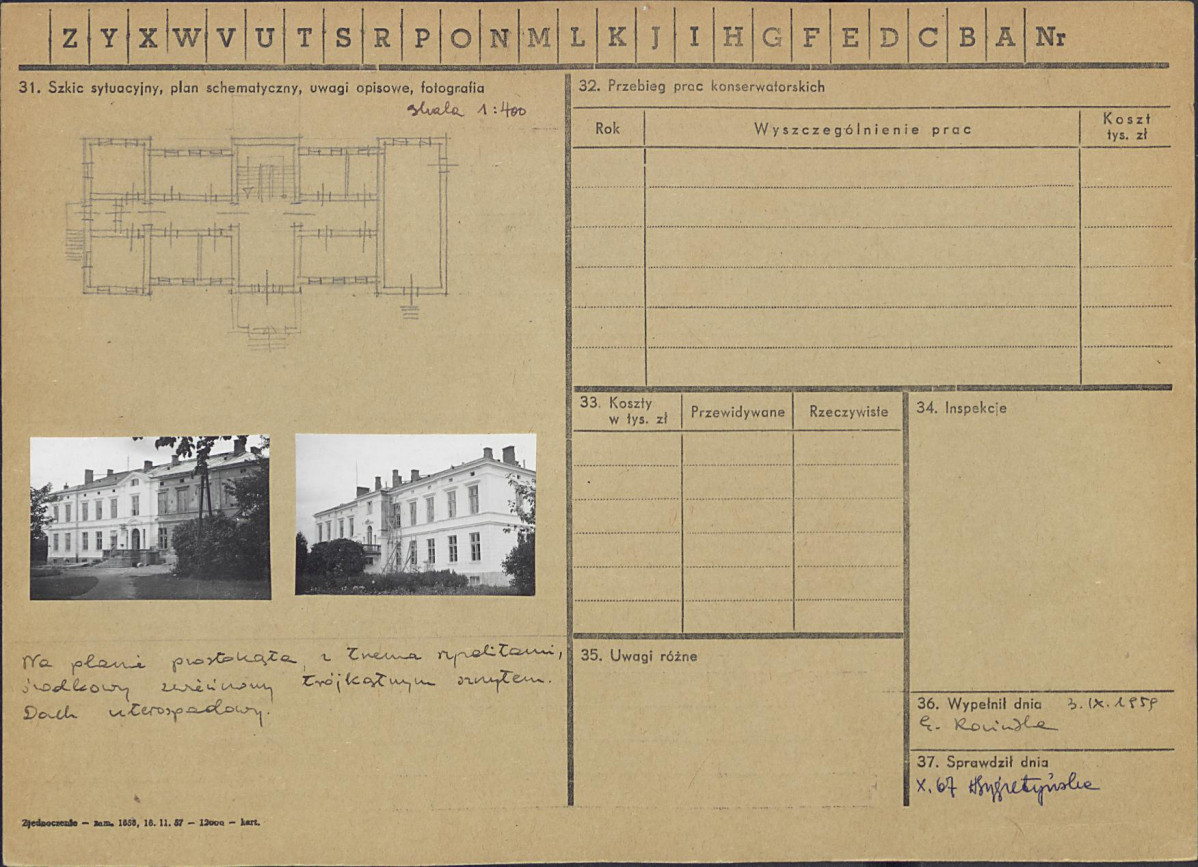 Z Y X W V U T S R P O N M L K J I H G F E D C B A Nr
31. Szkic sytuacyjny, plan schematyczny, uwagi opisowe, fotografia
skala 1:400
Na planie prostokąta, z trzema ryzalitami,
środkowy zwieńczony trójkątnym szczytem.
Dach czterospadowy.
Zjednoczenie — zam. 1858, 18. 11. 57 — 12000 — kart.
32. Przebieg prac konserwatorskich
Rok Wyszczególnienie prac Koszt tys. zł
33. Koszty w tys. zł Przewidywane Rzeczywiste
34. Inspekcje
35. Uwagi różne
36. Wypełnił dnia 3. IX. 1959
37. Sprawdził dnia
X. 67